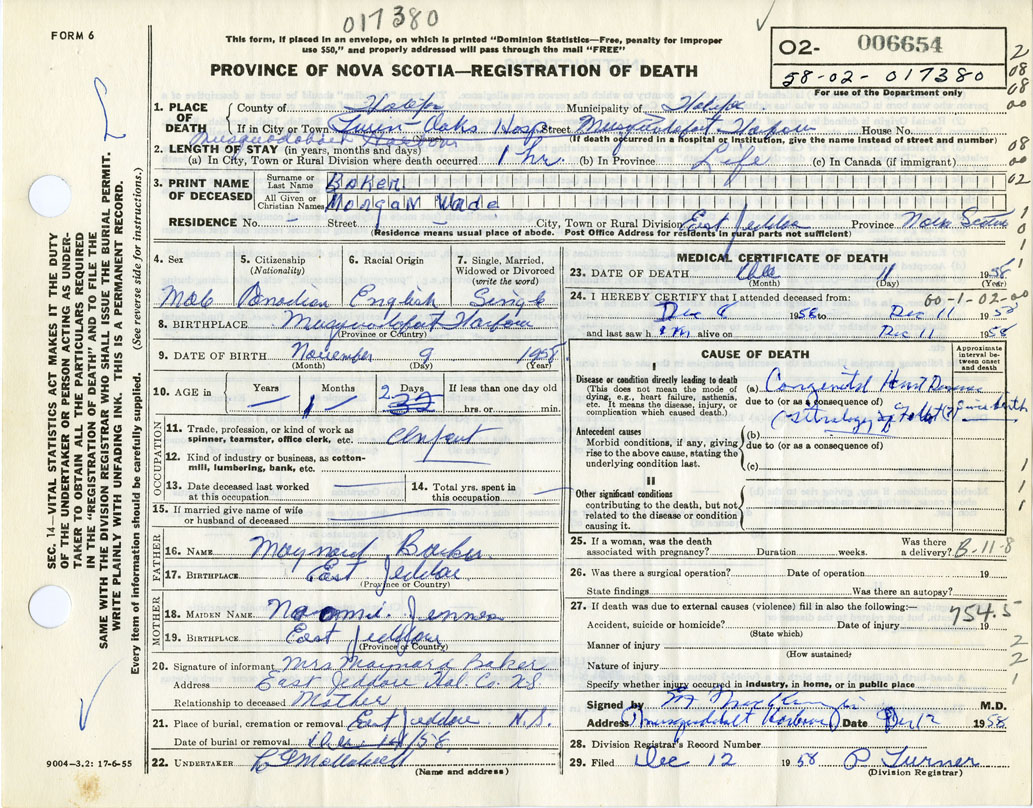 017380
FORM 6
This form, if placed in an envelope, on which is printed "Dominion Statistics—Free, penalty for improper
use $50," and properly addressed will pass through the mail "FREE"
PROVINCE OF NOVA SCOTIA—REGISTRATION OF DEATH
O2- 006654
58-02-017380
For use of the Department only
2
08
08
00
1. PLACE OF DEATH County of Halifax Municipality of Halifax
If in City or Town Twin Oaks Hosp Street Musquodoboit Harbour House No.
Musquodoboit Harbour (If death occurred in a hospital or institution, give the name instead of street and number)
2. LENGTH OF STAY (in years, months and days)
(a) In City, Town or Rural Division where death occurred 1 hr. (b) In Province Life (c) In Canada (if immigrant)
08
00
3. PRINT NAME OF DECEASED
Surname or Last Name Baker
02
All Given or Christian Names Morgan Wade
RESIDENCE No. — Street City, Town or Rural Division East Jeddore Province Nova Scotia
(Residence means usual place of abode. Post Office Address for residents in rural parts not sufficient)
4. Sex 5. Citizenship (Nationality) 6. Racial Origin 7. Single, Married, Widowed or Divorced (write the word)
Male Canadian English Single
8. BIRTHPLACE Musquodoboit Harbour
(Province or Country)
9. DATE OF BIRTH November 9 1958
(Month) (Day) (Year)
10. AGE in Years Months Days If less than one day old
— 1 2 32 hrs. or min.
OCCUPATION
11. Trade, profession, or kind of work as spinner, teamster, office clerk, etc. Infant
12. Kind of industry or business, as cotton-mill, lumbering, bank, etc.
13. Date deceased last worked at this occupation
14. Total yrs. spent in this occupation
15. If married give name of wife or husband of deceased
FATHER
16. NAME Maynard Baker
17. BIRTHPLACE East Jeddore
(Province or Country)
MOTHER
18. MAIDEN NAME Naomi Jennex
19. BIRTHPLACE East Jeddore
(Province or Country)
20. Signature of informant Mrs Maynard Baker
Address East Jeddore Hal. Co. N.S.
Relationship to deceased Mother
21. Place of burial, cremation or removal East Jeddore N.S.
Date of burial or removal /58.
22. UNDERTAKER
(Name and address)
9004—3.2: 17-6-55
SEC. 14—VITAL STATISTICS ACT MAKES IT THE DUTY
OF THE UNDERTAKER OR PERSON ACTING AS UNDER-
TAKER TO OBTAIN ALL THE PARTICULARS REQUIRED
IN THE "REGISTRATION OF DEATH" AND TO FILE THE
SAME WITH THE DIVISION REGISTRAR WHO SHALL ISSUE THE BURIAL PERMIT.
WRITE PLAINLY WITH UNFADING INK. THIS IS A PERMANENT RECORD.
Every item of information should be carefully supplied. (See reverse side for instructions.)
MEDICAL CERTIFICATE OF DEATH
23. DATE OF DEATH Dec 11 1958
(Month) (Day) (Year)
24. I HEREBY CERTIFY that I attended deceased from:
60-1-02-00
Dec 8 1958 to Dec 11 1958
and last saw him alive on Dec 11 1958
CAUSE OF DEATH
Approximate interval between onset and death
I
Disease or condition directly leading to death
(This does not mean the mode of dying, e.g., heart failure, asthenia, etc. It means the disease, injury, or complication which caused death.)
(a) Congenital Heart Disease
due to (or as a consequence of)
(Tetralogy of Fallot?) since birth
Antecedent causes
Morbid conditions, if any, giving rise to the above cause, stating the underlying condition last.
(b)
due to (or as a consequence of)
(c)
II
Other significant conditions
contributing to the death, but not related to the disease or condition causing it.
25. If a woman, was the death associated with pregnancy? Duration weeks. Was there a delivery?
B-11-8
26. Was there a surgical operation? Date of operation 19
State findings Was there an autopsy?
27. If death was due to external causes (violence) fill in also the following:—
754.5
Accident, suicide or homicide? Date of injury 19
(State which)
Manner of injury
(How sustained)
Nature of injury
Specify whether injury occurred in industry, in home, or in public place
Signed by M.D.
Address Musquodoboit Harbour Date Dec 12 1958
28. Division Registrar's Record Number
29. Filed Dec 12 1958 P Turner
(Division Registrar)